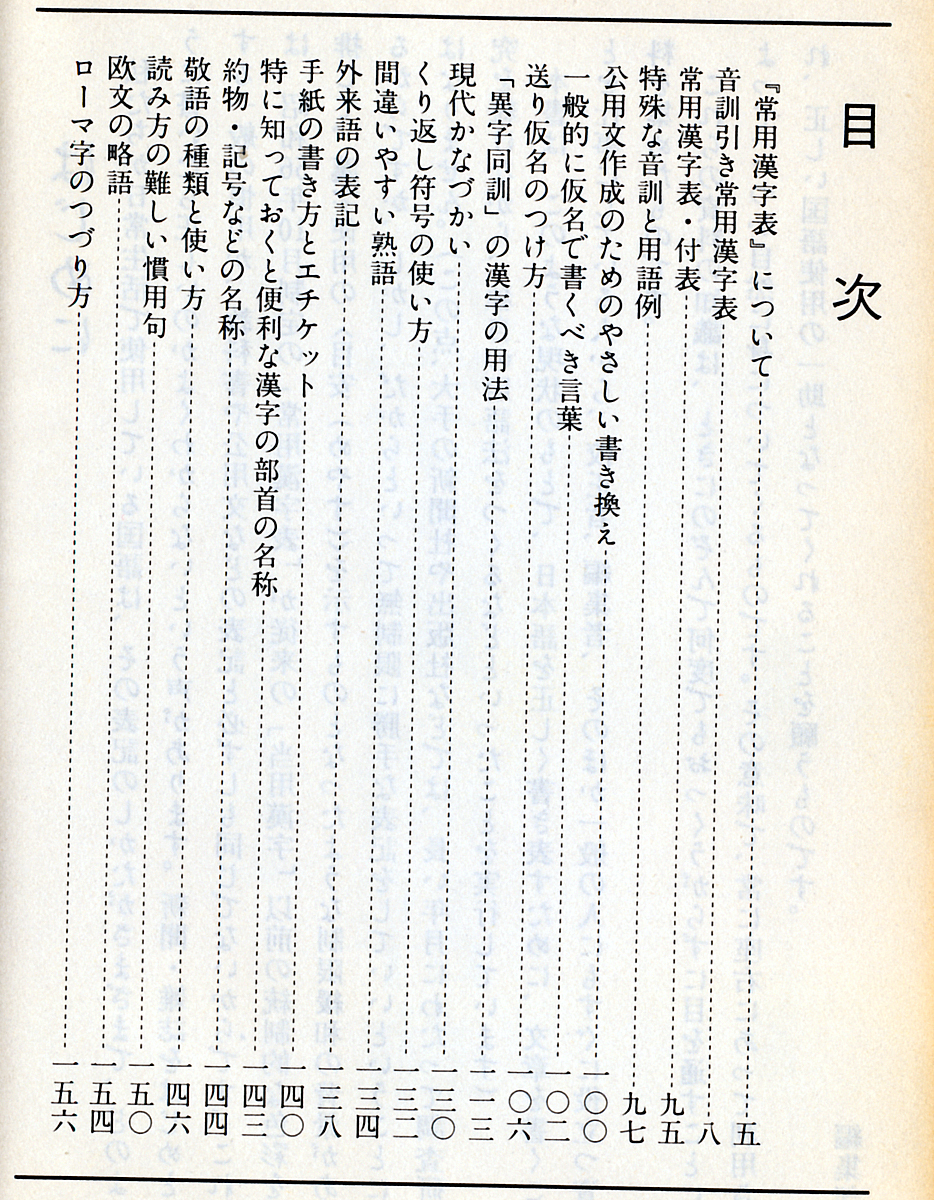 目次
『常用漢字表』について 五
音訓引き常用漢字表 八
常用漢字表・付表 九五
特殊な音訓と用語例 九七
公用文作成のためのやさしい書き換え 一〇〇
一般的に仮名で書くべき言葉 一〇二
送り仮名のつけ方 一〇六
「異字同訓」の漢字の用法 一一三
現代かなづかい 一三〇
くり返し符号の使い方 一三二
間違いやすい熟語 一三四
外来語の表記 一三八
手紙の書き方とエチケット 一四〇
特に知っておくと便利な漢字の部首の名称 一四三
約物・記号などの名称 一四四
敬語の種類と使い方 一四六
読み方の難しい慣用句 一五〇
欧文の略語 一五四
ローマ字のつづり方 一五六